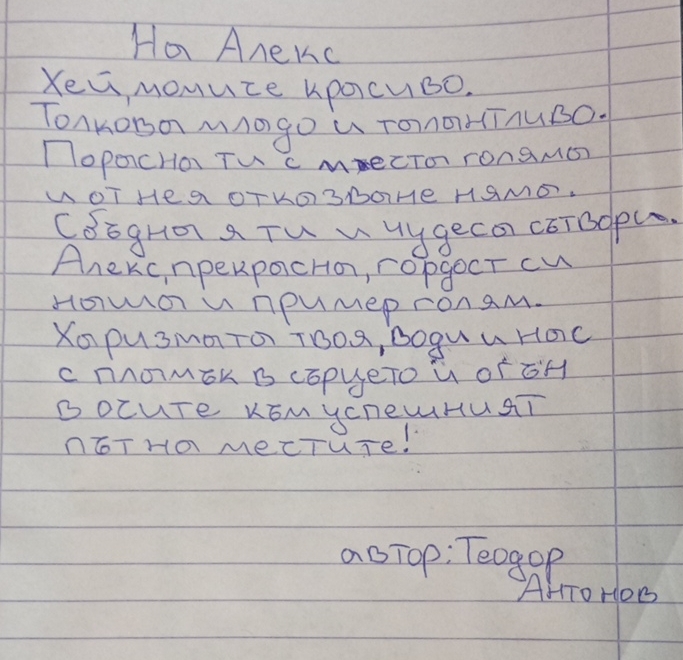 На Алекс
Хей, момиче красиво.
Толкова младо и талантливо.
Порасна ти с места голяма
и от нея отказване няма.
Сбъдна я ти и чудеса сътвори.
Алекс, прекрасна, гордост си
наша и пример голям.
Харизмата твоя, води и нас
с пламък в сърцето ѝ огън
в очите към успешният
път на местите!
автор: Теодор
Антонов